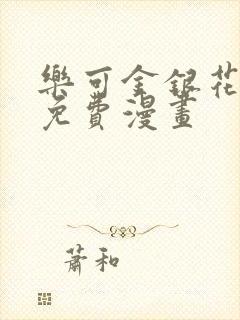 樂可金銀花
免費漫畫
蕭和